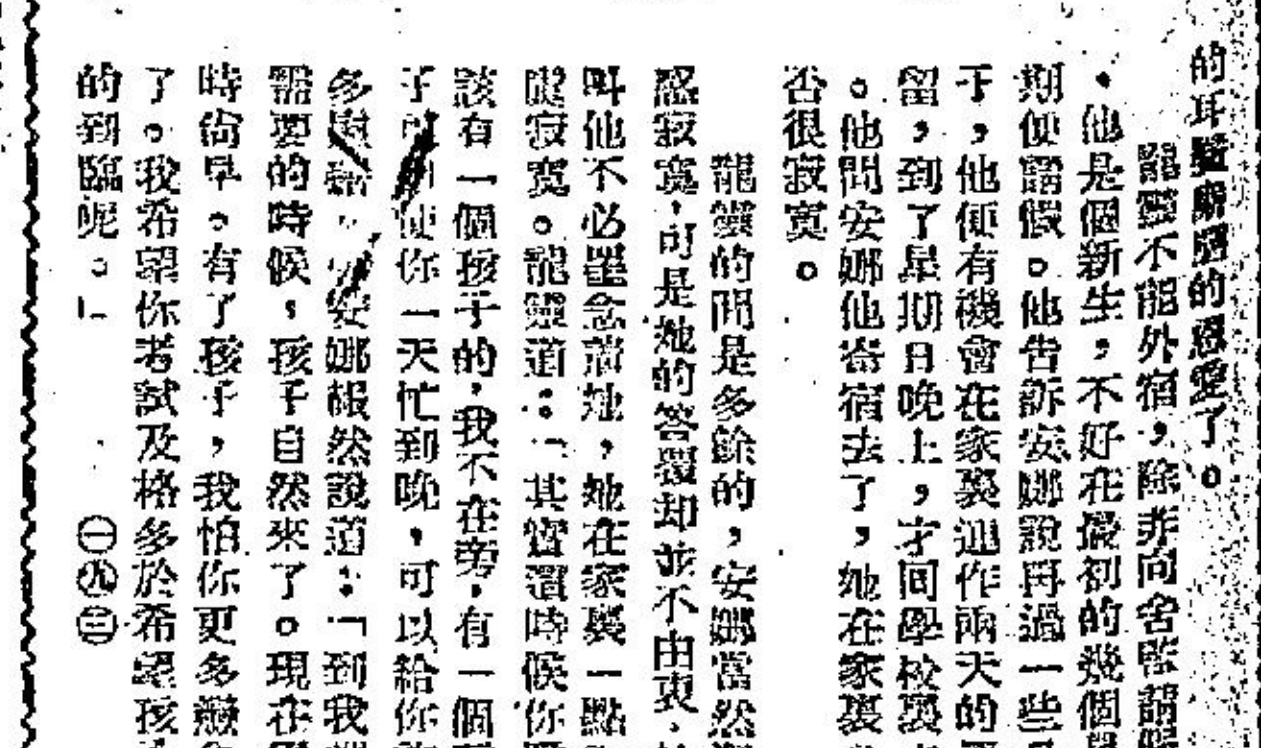 的耳鬢廝磨的恩愛了。
龍靈不能外宿，除非向舍監請假
。他是個新生，不好在最初的幾個
期便請假。他告訴安娜說再過一些
于，他便有機會在家裏連作兩天的
留，到了星期日晚上，才回學校裏
。他問安娜他寄宿去了，她在家裏
否很寂寞。
龍靈的問是多餘的，安娜當然
感寂寞，可是她的答覆却並不由衷，
叫他不必罣念着她，她在家裏一點
寂寞。龍靈道：「其實這時候你
該有一個孩子的，我不在旁，有一個
子 使你一天忙到晚，可以給你
多 安娜報然說道：「到我
需要的時候，孩子自然來了。現在
時尙早。有了孩子，我怕你更多
了。我希望你考試及格多於希望孩
的到臨呢。」 ㊀㊈㊂